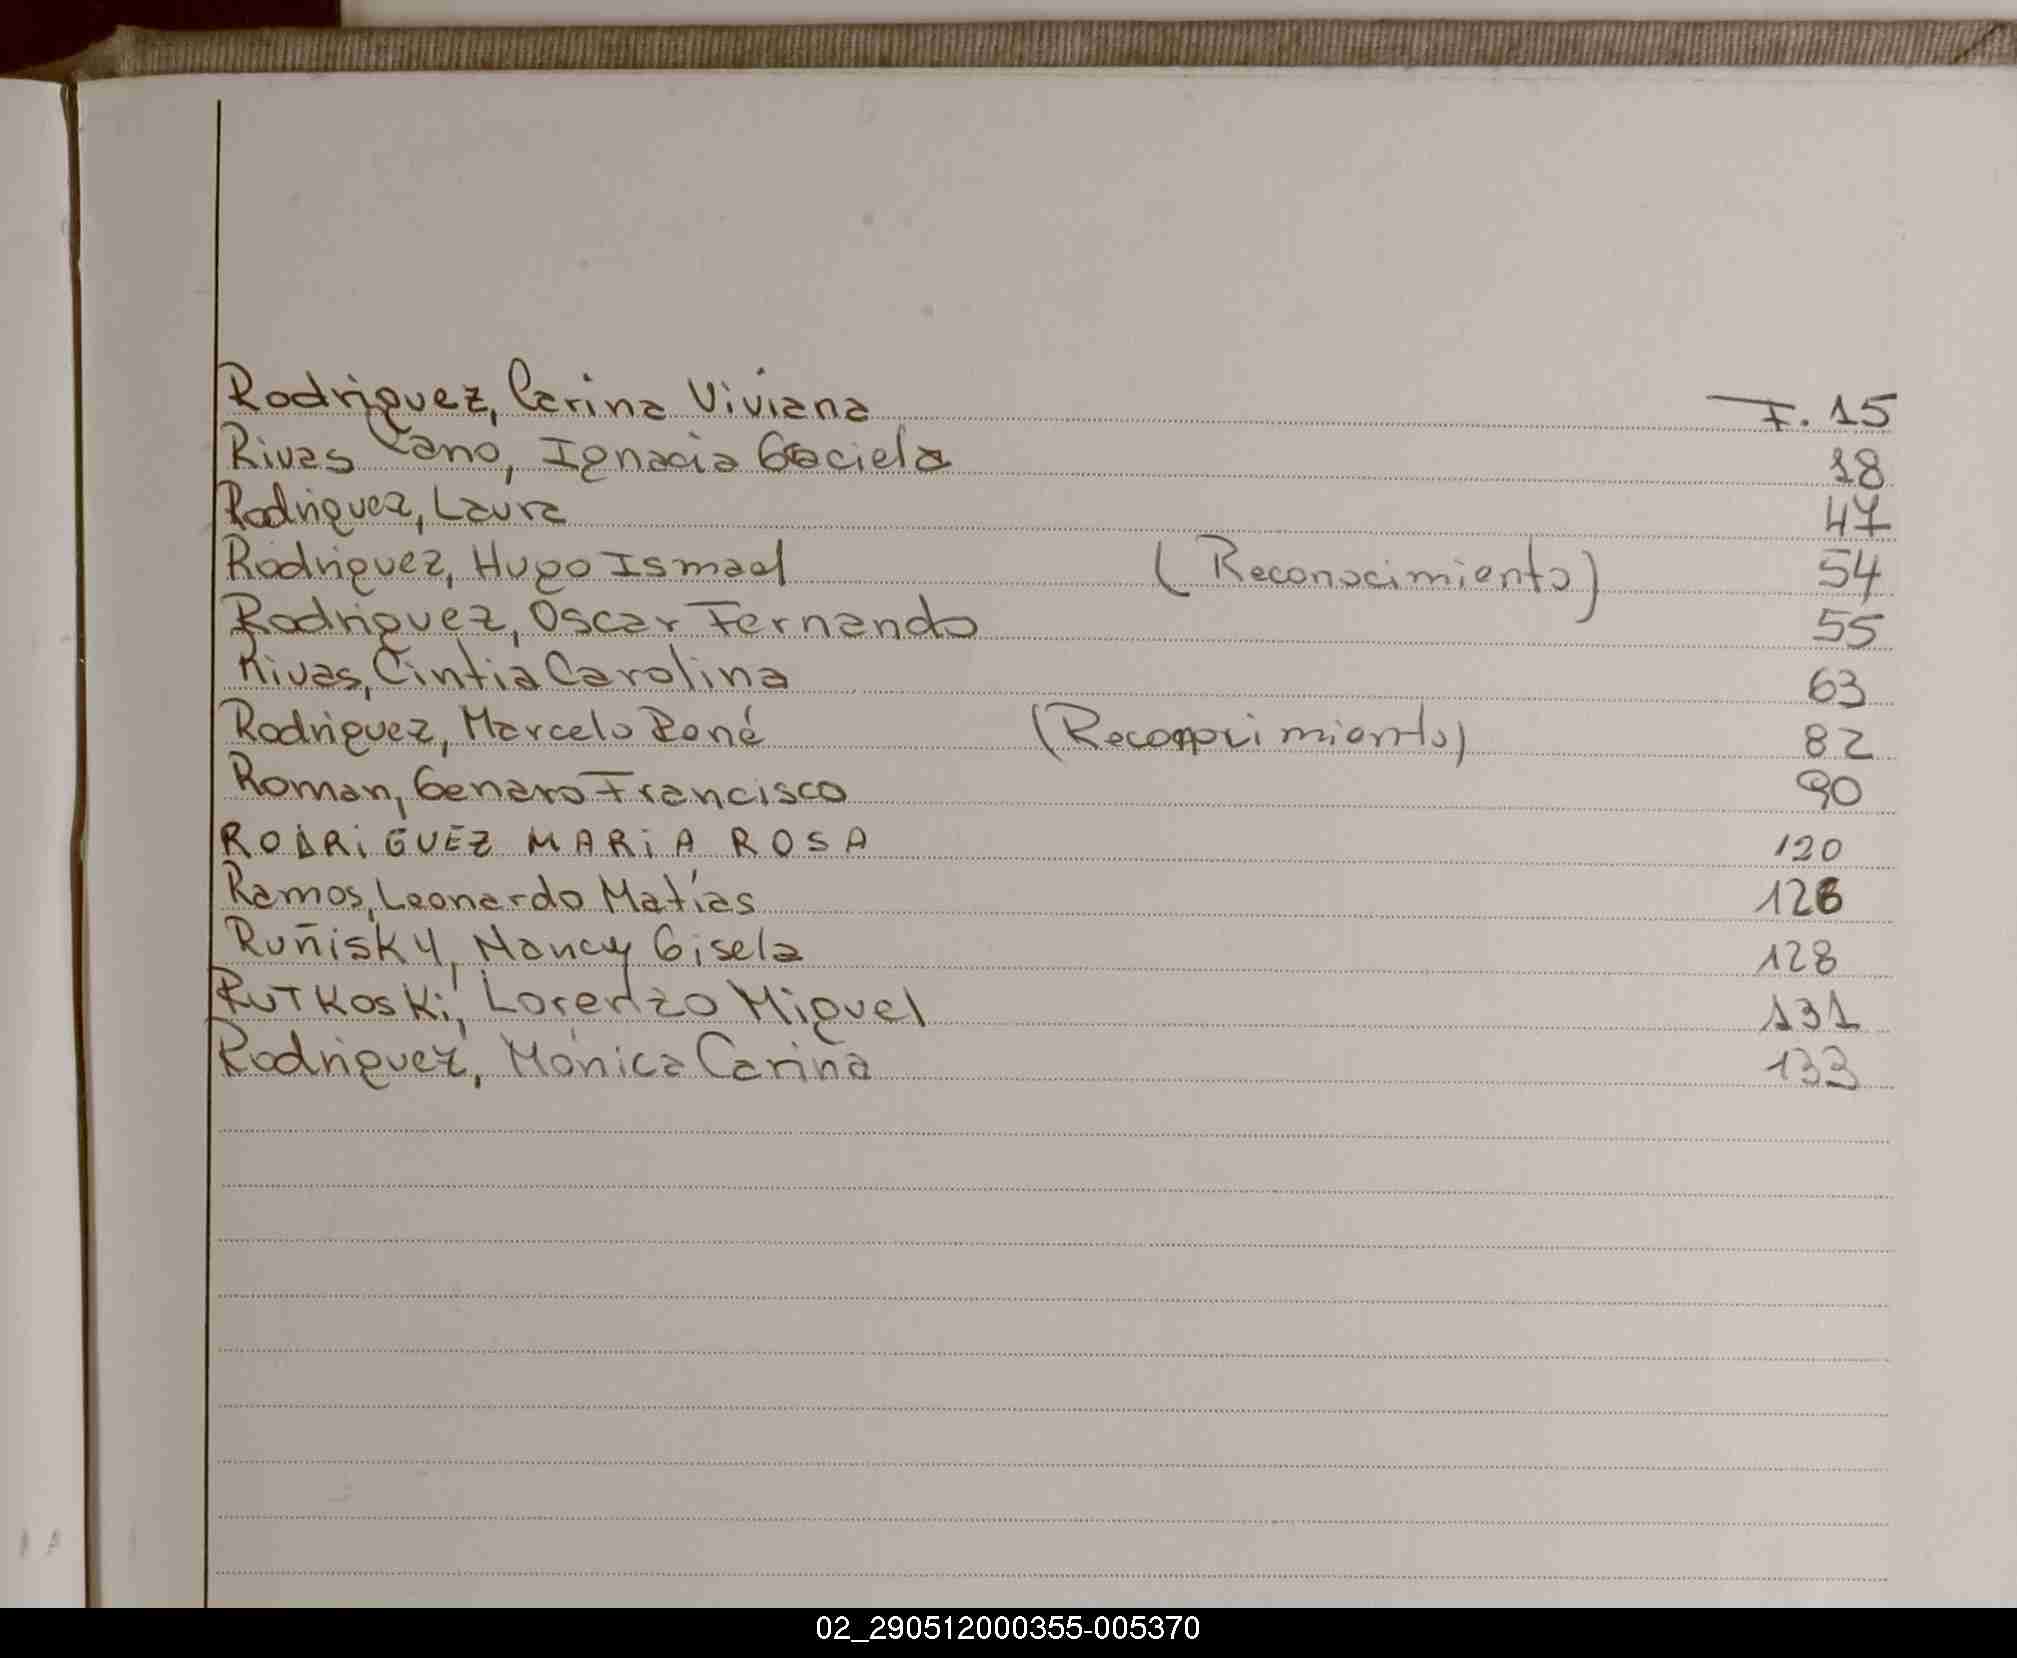 Rodriguez, Carina Viviana F. 15
Rivas Cano, Ignacia Graciela 18
Rodriguez, Laura 47
Rodriguez, Hugo Ismael (Reconocimiento) 54
Rodriguez, Oscar Fernando 55
Rivas, Cintia Carolina 63
Rodriguez, Marcelo René (Reconocimiento) 82
Roman, Genaro Francisco 90
RODRiGUEZ MARiA ROSA 120
Ramos, Leonardo Matías 126
Ruñisky, Nancy Gisela 128
RuTKosKi, Lorenzo Miguel 131
Rodriguez, Mónica Carina 133
02_290512000355-005370